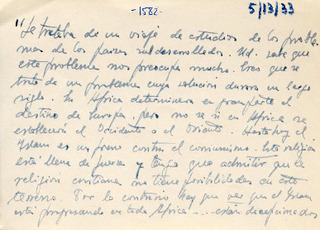 -1582-
5/13/33
"Se trataba de un viaje de estudios de los proble-
mas de los países subdesarrollados. Ud. sabe que
este problema nos preocupa mucho. Creo que se
trata de un problema cuya solución durará un largo
siglo. La África determinara en gran parte el
destino de Europa. pero no se si en África se
establecerá el Occidente o el Oriente. Hasta hoy el
Islam es un freno contra el comunismo. Esta religión
está llena de fuerza y tengo que admitir que la
religión cristiana no tiene posibilidades en este
terreno. Por lo contrario hay que ver que el Islam
está progresando en toda África ... están decepcionados